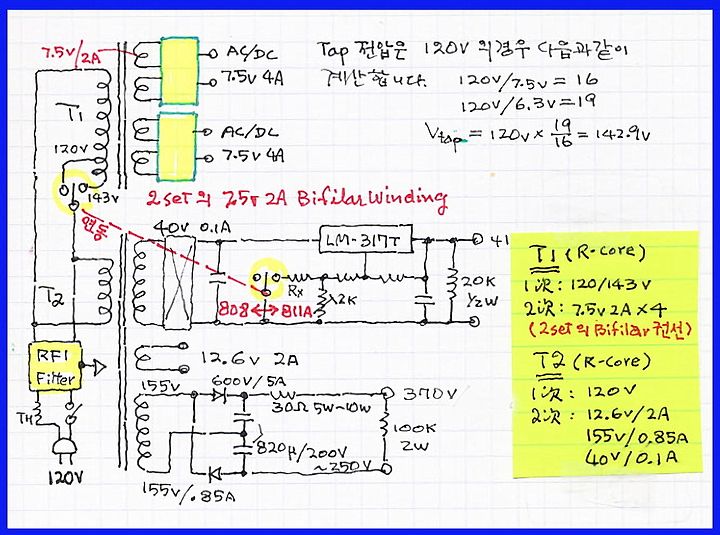 7.5v/2A
AC/DC
7.5v 4A
AC/DC
7.5v 4A
Tap 전압은 120V 의경우 다음과같이
계산합니다. 120V/7.5v = 16
120V/6.3v = 19
Vtap = 120v x 19/16 = 142.9v
T1
120V
143v
2set의 7.5v 2A Bifilar Winding
연동
40v 0.1A
LM-317T
41
Rx
808 ↔ 811A
2K
20K
1/2W
T2
RFI
Filter
TH
120V
12.6v 2A
155v
600V/5A
30Ω 5w~10w
370V
100K
2W
820μ/200V
~250V
155v/.85A
T1 (R-core)
1次: 120/143v
2次: 7.5v 2A x 4
(2set의 Bifilar 권선)
T2 (R-core)
1次: 120V
2次: 12.6v/2A
155v/0.85A
40v/0.1A